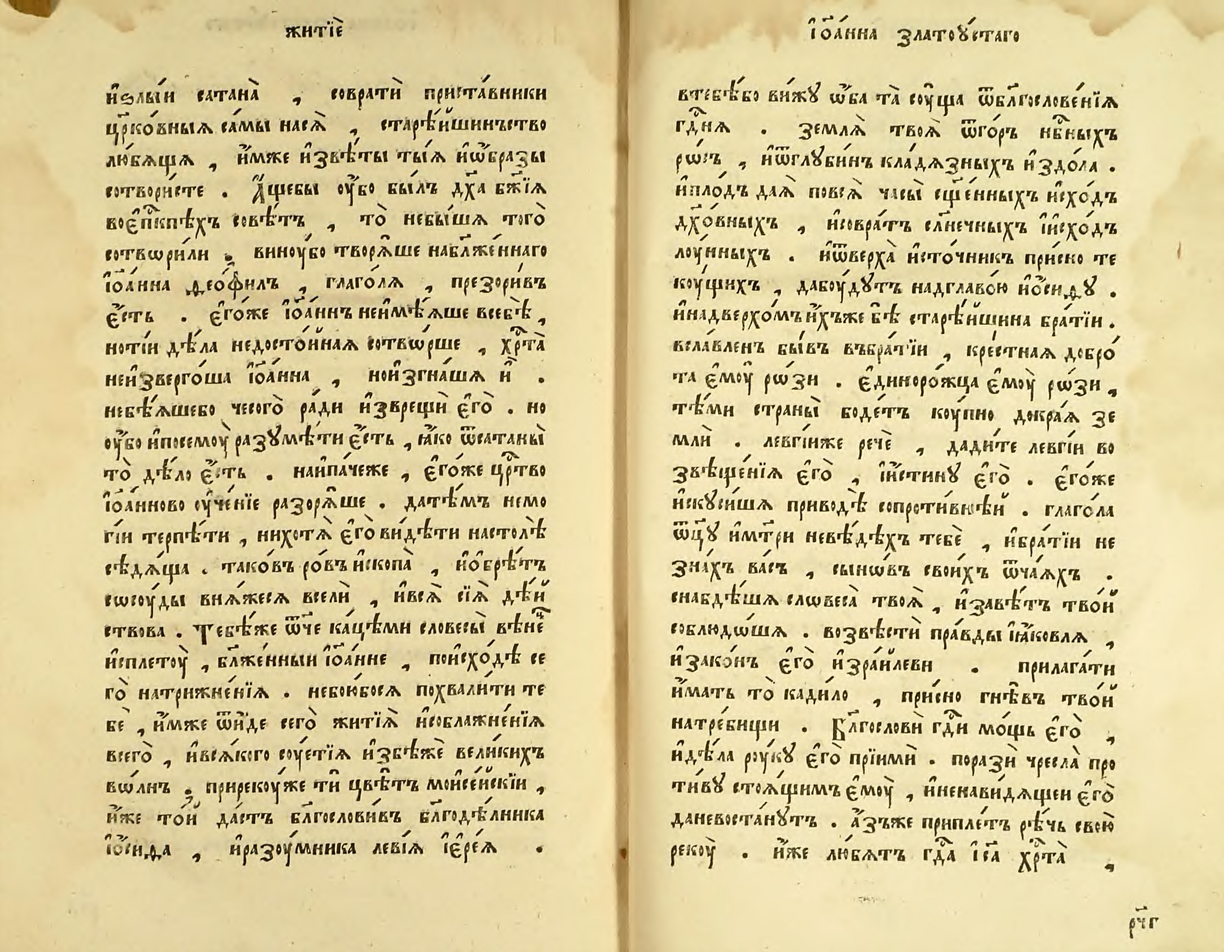 житїѐ
и҆ѕлы́и сатана̀ , соврати́ приста́вники
цр҃ко́вныѧ са́мы насѧ̀ , старѣ́йшинъство
лю́бѧщѧ , и҆́мже и҆зве́ты ты́ѧ и҆ѡ҆́бразы
сотвори́сте . А҆́щебы оу҆́бо бы́лъ дх҃а бж҃їѧ
воє҆пⷭ҇кпѣхъ совѣ́тъ , то̀ небы́шѧ того̀
сотвѡри́ли . виноу҆́бо творѧ́ше набл҃же́ннаго
і҆ѡа́нна ѳео́филъ , глаго́лѧ , презори́въ
є҆́сть . є҆го́же і҆ѡа́ннъ неимѣ́ѧше всебѣ̀ ,
нотїи дѣ́ла недосто́инаѧ сотвѡ́рше , хрⷭ҇та̀
неи҆зверго́ша і҆ѡа́нна , нои҆згна́шѧ и҆̀ .
небѣ́ѧшебо чесого̀ ра́ди и҆зврещѝ є҆го̀ . но
оу҆́бо и҆посемоу̀ разꙋмѣ́ти є҆́сть , ꙗ҆́ко ѿсатаны̀
то̀ дѣ́ло є҆́сть . наипа́чеже , є҆го́же црⷭ҇тво
і҆ѡа́нново оу҆че́нїе разорѧ́ше . датѣ́мъ немо
гїи терпѣ́ти , нихотѧ̀ є҆го̀ ви́дѣти настолѣ̀
сѣдѧ́ща . тако́въ ро́въ и҆скопа̀ , и҆о҆брѣ́тъ
сѡсоу́ды внѧ́жесѧ вселѝ , и҆всѧ̀ сїѧ̀ дѣ́й
ствова . Тебѣ́же ѿ́че кацѣ́ми словесы̀ вѣне́ⷰ
и҆сплетоу̀ , бл҃же́нныи і҆ѡа́нне , поисхо́дѣ се
го̀ натрижне́нїѧ . небою́босѧ похвали́ти те
бѐ , и҆́мже ѿи́де сего̀ житїѧ̀ и҆соблажне́нїѧ
всего̀ , и҆всѧ́кого соу́етїѧ и҆збѣжѐ вели́кихъ
вѡ́лнъ . прирекоу́же тѝ цвѣ́тъ моисе́йскїи ,
и҆́же то́й да́стъ бл҃гослови́въ бл҃годѣ́лника
і҆ѡ́сифа , и҆разоу́мника леві́ѧ і҆ере́ѧ .
і҆ѡа́нна златоу́стаго
втебѣ́бо ви́жꙋ ѡ҆́ба та̀ соу́ща ѿбл҃гослове́нїѧ
гдⷭ҇нѧ . землѧ̀ твоѧ̀ ѿго́ръ нбⷭ҇ныхъ
рѡ́съ , и҆ѿглꙋби́нъ кла́дѧзныхъ и҆здо́ла .
и҆пло́дъ даѧ̀ повсѧ̀ часы̀ сщ҃е́нныхъ и҆схо́дъ
дх҃о́вныхъ , и҆совра́тъ сл҃нечныхъ і҆и҆схо́дъ
лоу́нныхъ . и҆ѿверха̀ и҆сто́чникъ при́сно те
коу́щихъ , дабоу́дꙋтъ надглаво́ю і҆ѡ́сифꙋ .
и҆надверхо́мъи҆́хъже бѣ̀ старѣ́йшина бра́тїи .
вславленъ бы́въ въбра́тїи , кре́стнаѧ добро́
та є҆моу̀ рѡ́зи . є҆диноро́жца є҆моу̀ рѡ́зи ,
тѣ́ми страны̀ боде́тъ коу́пно докра́ѧ зе
млѝ . левгі́иже речѐ , дади́те левгі́и во
звѣще́нїѧ є҆го̀ , і҆и҆́стинꙋ є҆го̀ . є҆го́же
и҆скꙋси́шѧ приводѣ̀ сопроти́внѣй . глаго́ла
ѿц҃ꙋ и҆мт҃ри невѣ́дѣхъ тебѐ , и҆бра́тїи не
зна́хъ ва́съ , сынѡ́въ свои́хъ ѿча́ѧхъ .
снабдѣ́шѧ слѡвеса̀ твоѧ̀ , и҆завѣ́тъ тво́й
соблюдѡ́шѧ . возвѣстѝ пра́вды і҆ꙗ́ковлѧ ,
и҆зако́нъ є҆го̀ и҆зра́илеви . прилага́ти
и҆́мать то̀ кади́ло , при́сно гнѣ́въ тво́й
натре́бищи . Бл҃гословѝ гдⷭ҇и мо́щь є҆го̀ ,
и҆дѣ́ла роу́кꙋ є҆го̀ прїимѝ . поразѝ чресла̀ про
ти́вꙋ стоѧ́щимъ є҆моу̀ , и҆ненави́дѧщеи є҆го̀
даневоста́нꙋтъ . а҆́зъже приплетъ рѣ́чь свою̀
рекоу̀ . и҆́же лю́бѧтъ гдⷭ҇а і҆и҃са хрⷭ҇та̀ ,
рч҃г